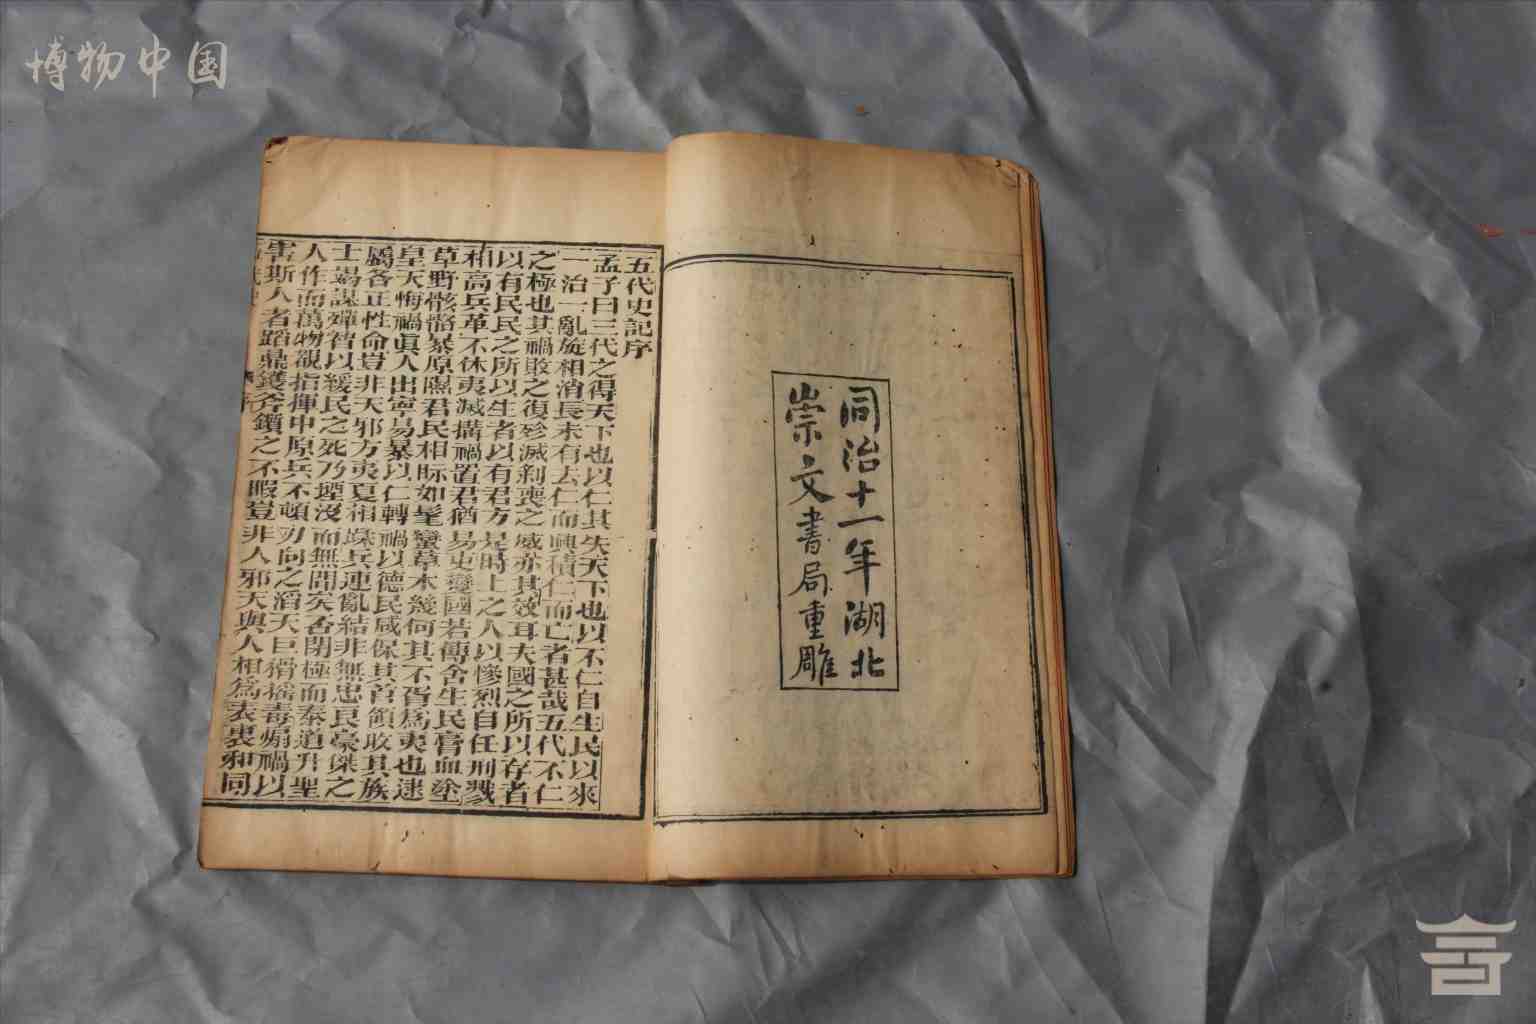 博物中国
同治十一年湖北
崇文書局重雕
五代史記序
孟子曰三代之得天下也以仁其失天下也以不仁自生民以來
一治一亂旋相消長未有去仁而興積仁而亡者甚哉五代不仁
之極也其禍敗之復殄滅剝喪之威亦其效耳夫國之所以存者
以有民民之所以生者以有君方是時上之人以慘烈自任刑戮
相高兵革不休夷滅搆禍置君猶易吏變國若傳舍生民膏血塗
草野骸骼暴原隰君民相眎如髦蠻草木幾何其不胥爲夷也逮
皇天悔禍眞人出寧易暴以仁轉禍以德民咸保其首領收其族
屬各正性命豈非天邪方夷夏相蹂兵連亂結非無忠良豪傑之
士竭謀殫智以緩民之死乃堙沒而無聞矣否閉極而泰道升聖
人作而萬物覩指揮中原兵不頓刃向之滔天巨猾搖毒煽禍以
害斯人者蹈鼎鑊斧鑕之不暇豈非人邪天與人相爲表裏和同